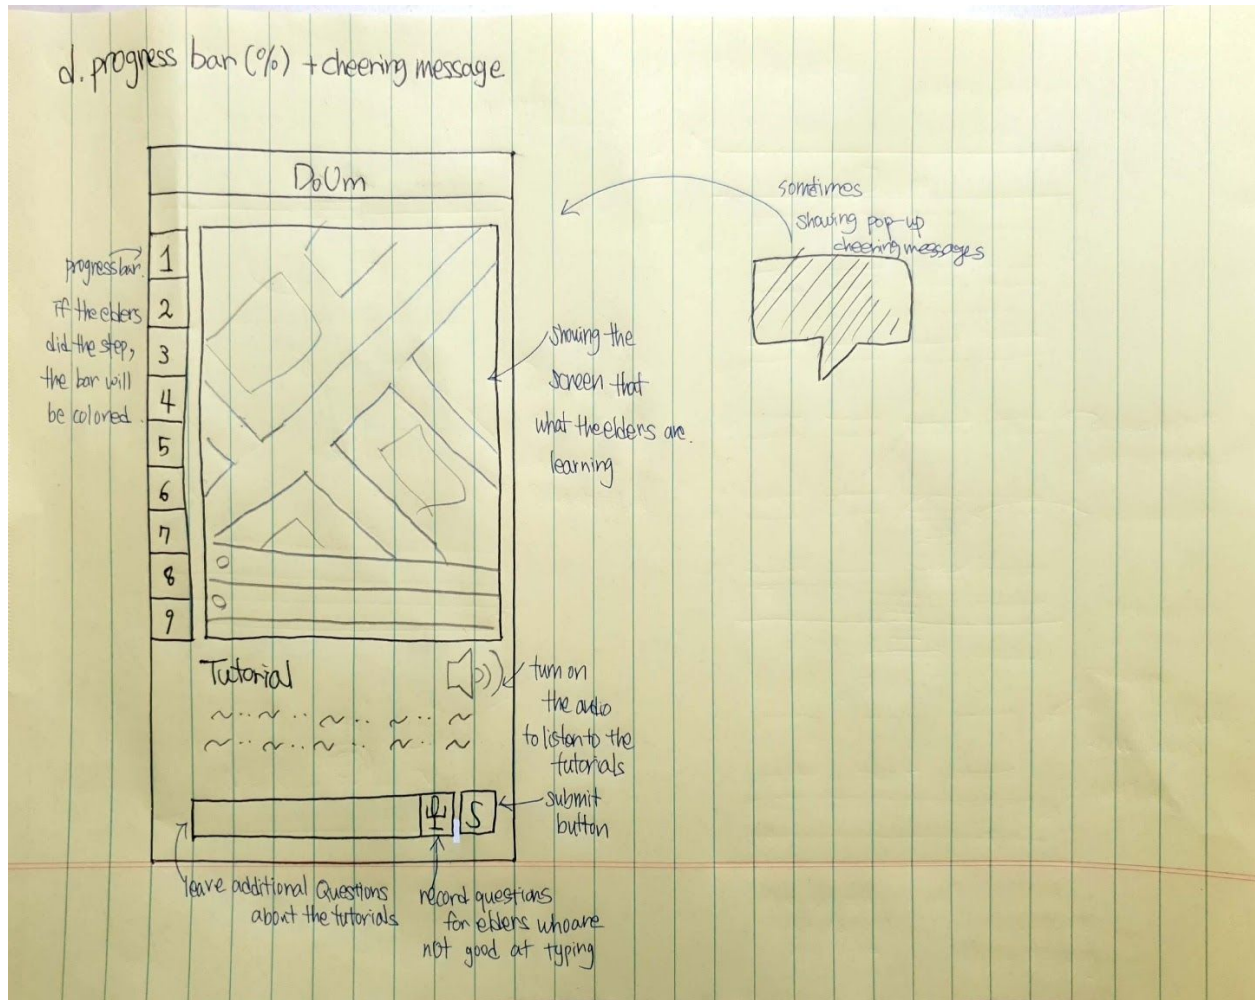 d. progress bar (%) + cheering message
DoUm
sometimes
showing pop-up
cheering messages
progress bar.
If the elders
did the step,
the bar will
be colored.
1
2
3
4
5
6
7
8
9
showing the
screen that
what the elders are.
learning
Tutorial
turn on
the audio
to listen to the
tutorials
S
submit
button
leave additional Questions
about the tutorials
record questions
for elders who are
not good at typing